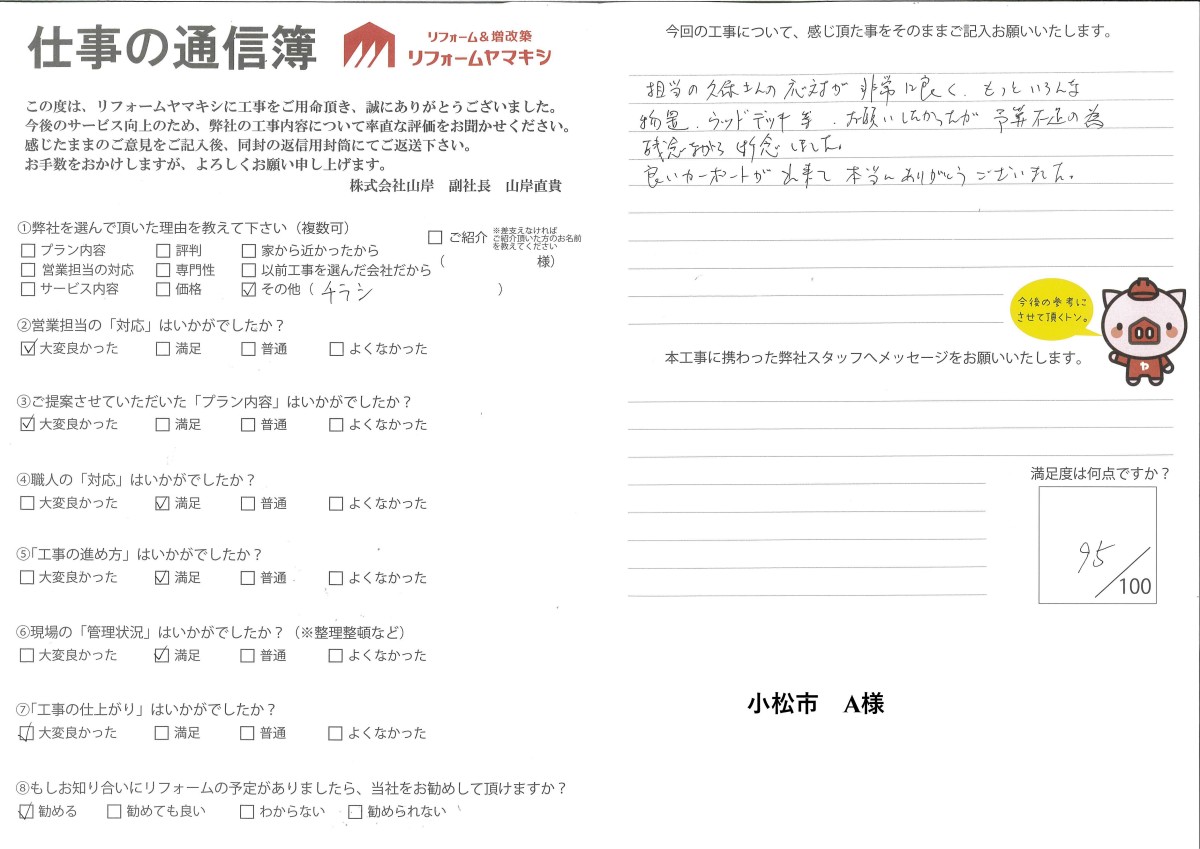 仕事の通信簿
リフォーム&増改築
リフォームヤマキシ
この度は、リフォームヤマキシに工事をご用命頂き、誠にありがとうございました。
今後のサービス向上のため、弊社の工事内容について率直な評価をお聞かせください。
感じたままのご意見をご記入後、同封の返信用封筒にてご返送下さい。
お手数をおかけしますが、よろしくお願い申し上げます。
株式会社山岸 副社長 山岸直貴
①弊社を選んで頂いた理由を教えて下さい（複数可）
□プラン内容 □評判 □家から近かったから □ご紹介 ※差支えなければ
ご紹介頂いた方のお名前
を教えてください
□営業担当の対応 □専門性 □以前工事を選んだ会社だから （ 様）
□サービス内容 □価格 ☑その他（ チラシ ）
②営業担当の「対応」はいかがでしたか？
☑大変良かった □満足 □普通 □よくなかった
③ご提案させていただいた「プラン内容」はいかがでしたか？
☑大変良かった □満足 □普通 □よくなかった
④職人の「対応」はいかがでしたか？
□大変良かった ☑満足 □普通 □よくなかった
⑤「工事の進め方」はいかがでしたか？
□大変良かった ☑満足 □普通 □よくなかった
⑥現場の「管理状況」はいかがでしたか？（※整理整頓など）
□大変良かった ☑満足 □普通 □よくなかった
⑦「工事の仕上がり」はいかがでしたか？
☑大変良かった □満足 □普通 □よくなかった
⑧もしお知り合いにリフォームの予定がありましたら、当社をお勧めして頂けますか？
☑勧める □勧めても良い □わからない □勧められない
今回の工事について、感じ頂た事をそのままご記入お願いいたします。
担当の久保さんの応対が非常に良く、もっといろんな
物置、ウッドデッキ等、お願いしたかったが予算不足の為
残念ながら断念しました。
良いカーポートが出来て本当にありがとうございました。
今後の参考に
させて頂くトン。
ヤ
本工事に携わった弊社スタッフへメッセージをお願いいたします。
満足度は何点ですか？
95／100
小松市 A様